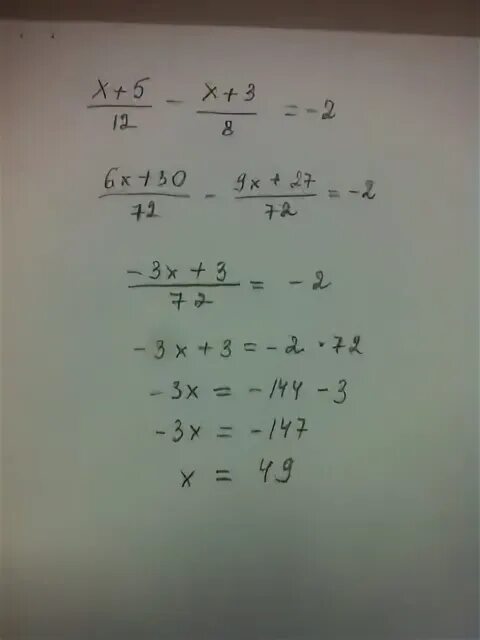 (x+5)/12 - (x+3)/8 = -2
(6x+30)/72 - (9x+27)/72 = -2
(-3x+3)/72 = -2
-3x+3 = -2·72
-3x = -144-3
-3x = -147
x = 49